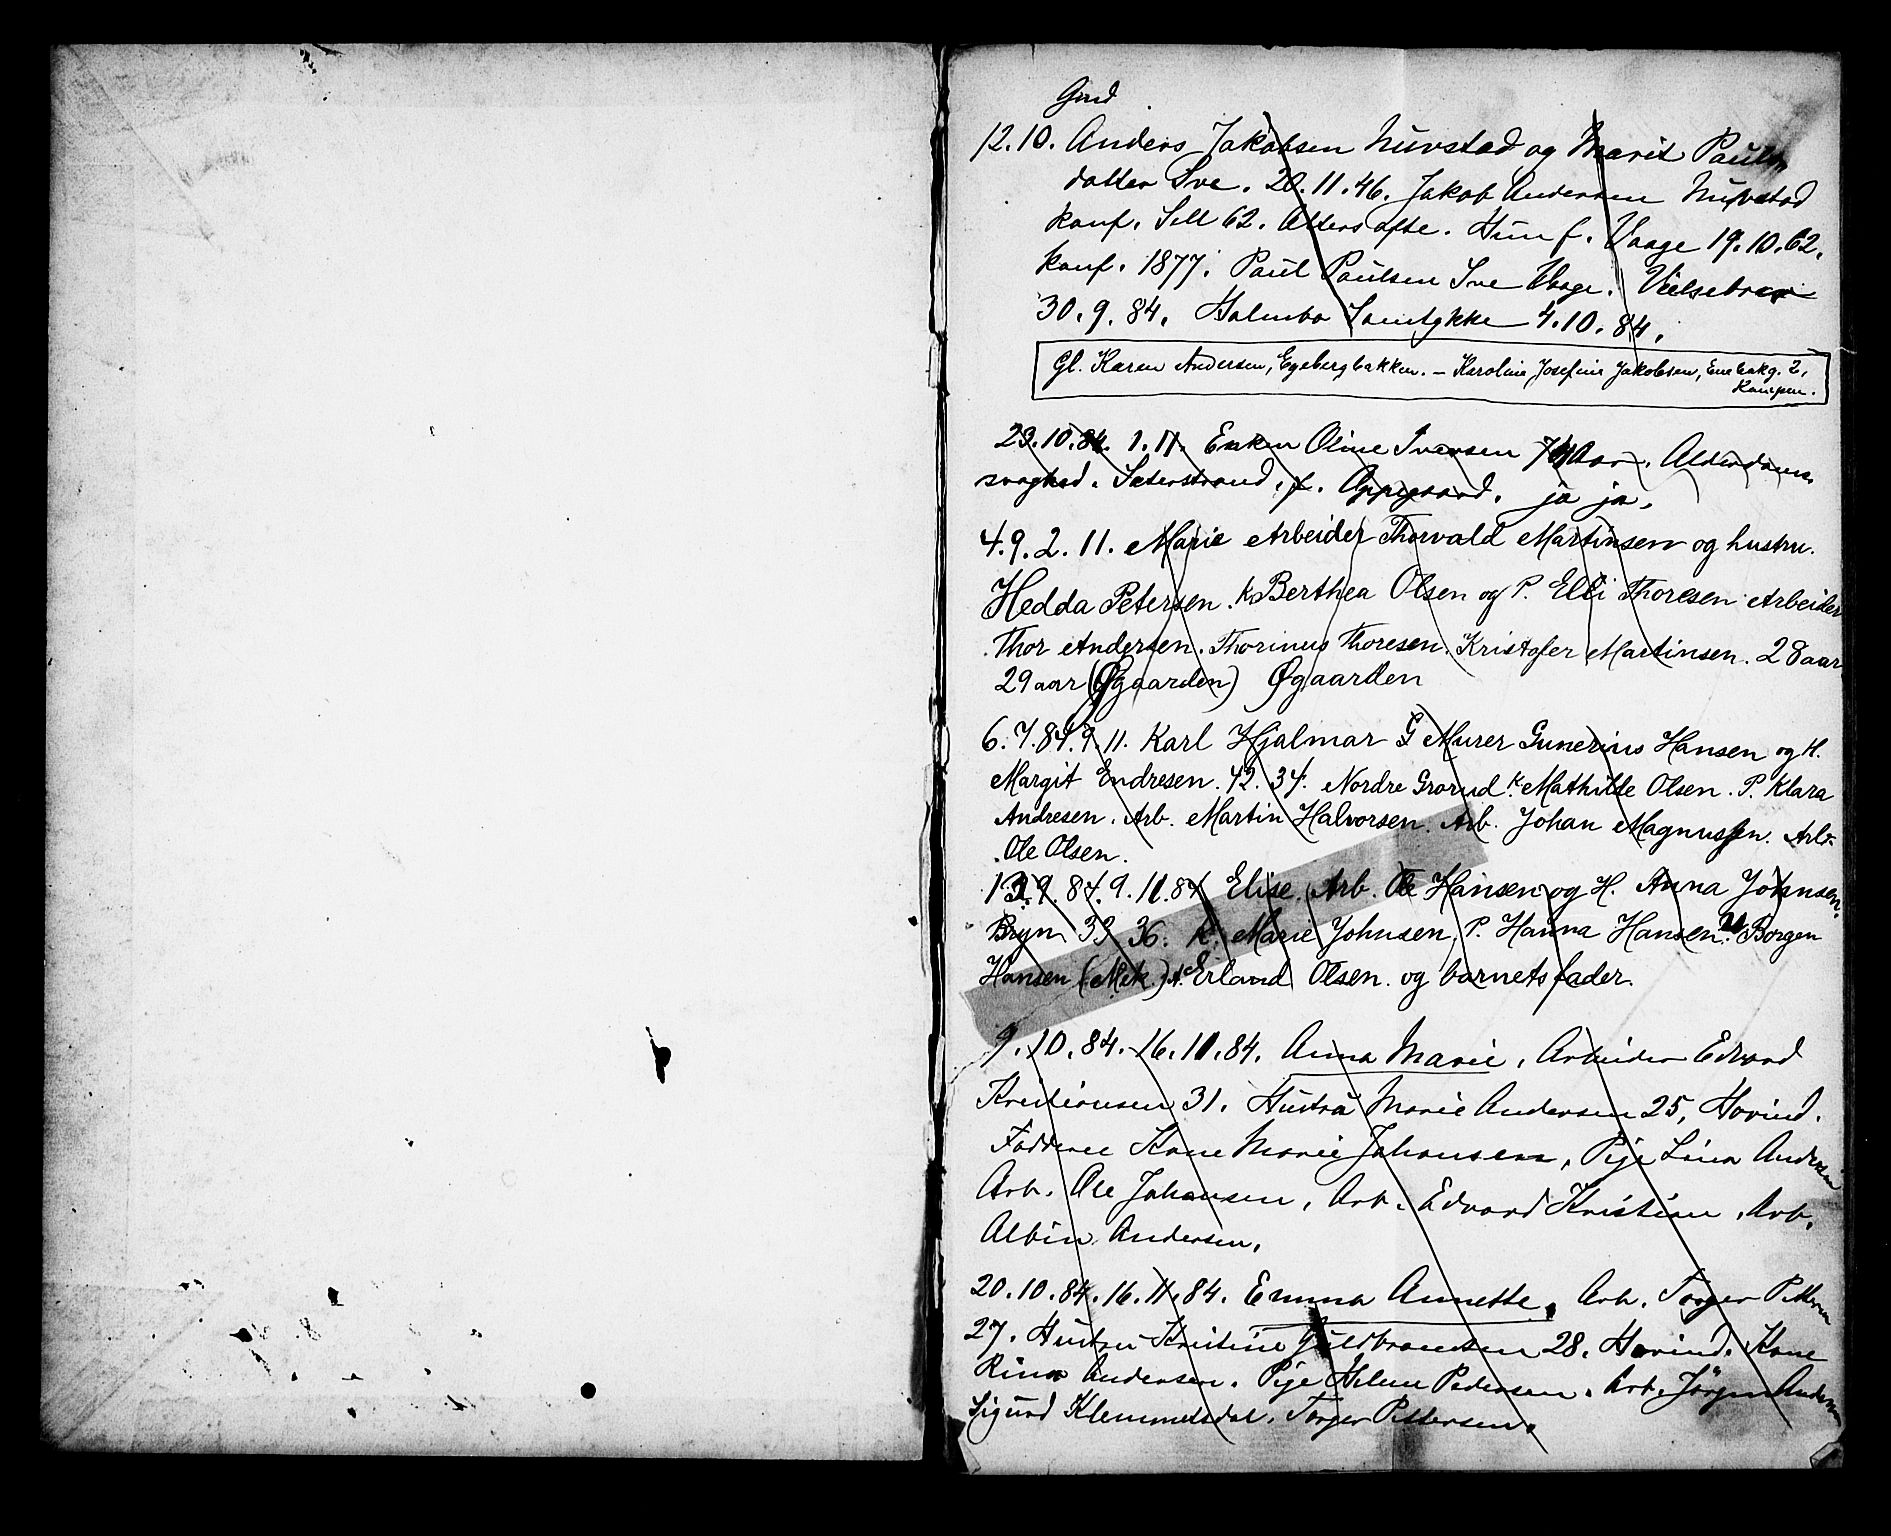 Gmd
12.10. Anders Jakobsen Nuvstad og Marit Pauls
datter Sve. 20.11.46. Jakob Andersen Nuvstad
konf. Sell 62. Attersofte. Hun f. Vaage 19.10.62.
konf. 1877. Paul Paulsen Sve Vaage. Vielsebrev
30.9.84. Holmbo Samtykke 4.10.84.
Gl. Karen Andersen, Egebergbakken. – Karoline Josefine Jakobsen, Enebakg. 2,
Kampen.
23.10.84. 1.11. Enken Oline Iversen 74 Aar. Alderdoms
svaghed. Sæterstrand, f. Oppegaard. ja ja.
4.9. 2.11. Marie Arbeider Thorvald Martinsen og hustru.
Hedda Petersen. K Berthea Olsen og P. Elli Thoresen Arbeider
Thor Andersen. Thorinus Thoresen. Kristofer Martinsen. 28 aar
29 aar (Øgaarden) Øgaarden
6.7.84. 9.11. Karl Hjalmar G Murer Gunerius Hansen og H.
Margit Endresen. 42. 34. Nordre Grorud. K. Mathilde Olsen. P. Klara
Andresen. Arb. Martin Halvorsen. Arb. Johan Magnussen. Arb.
Ole Olsen.
13.9.84. 9.11.84 Elise. Arb. Ole Hansen og H. Anna Johnsen.
Bryn 33 36. K. Marie Johnsen, P. Hanna Hansen. Borgen
Hansen (Mek.) A. Erland Olsen. og barnets fader.
9.10.84. 16.11.84. Anna Marie, Arbeider Edvard
Kristiansen 31. Hustru Marie Andersen 25, Hovind.
Faddere Kone Marie Johansen, Pige Lina Andersen
Arb. Ole Johansen, Arb. Edvard Kristian, Arb.
Albin Andersen.
20.10.84. 16.11.84. Emma Annette, Arb. Torger Pettersen
27. Hustru Kristine Guldbrandsen 28. Hovind. Kone
Rina Andersen. Pige Helene Pedersen. Arb. Jörgen Andersen
Sigurd Klemmetsdal. Torger Pettersen.